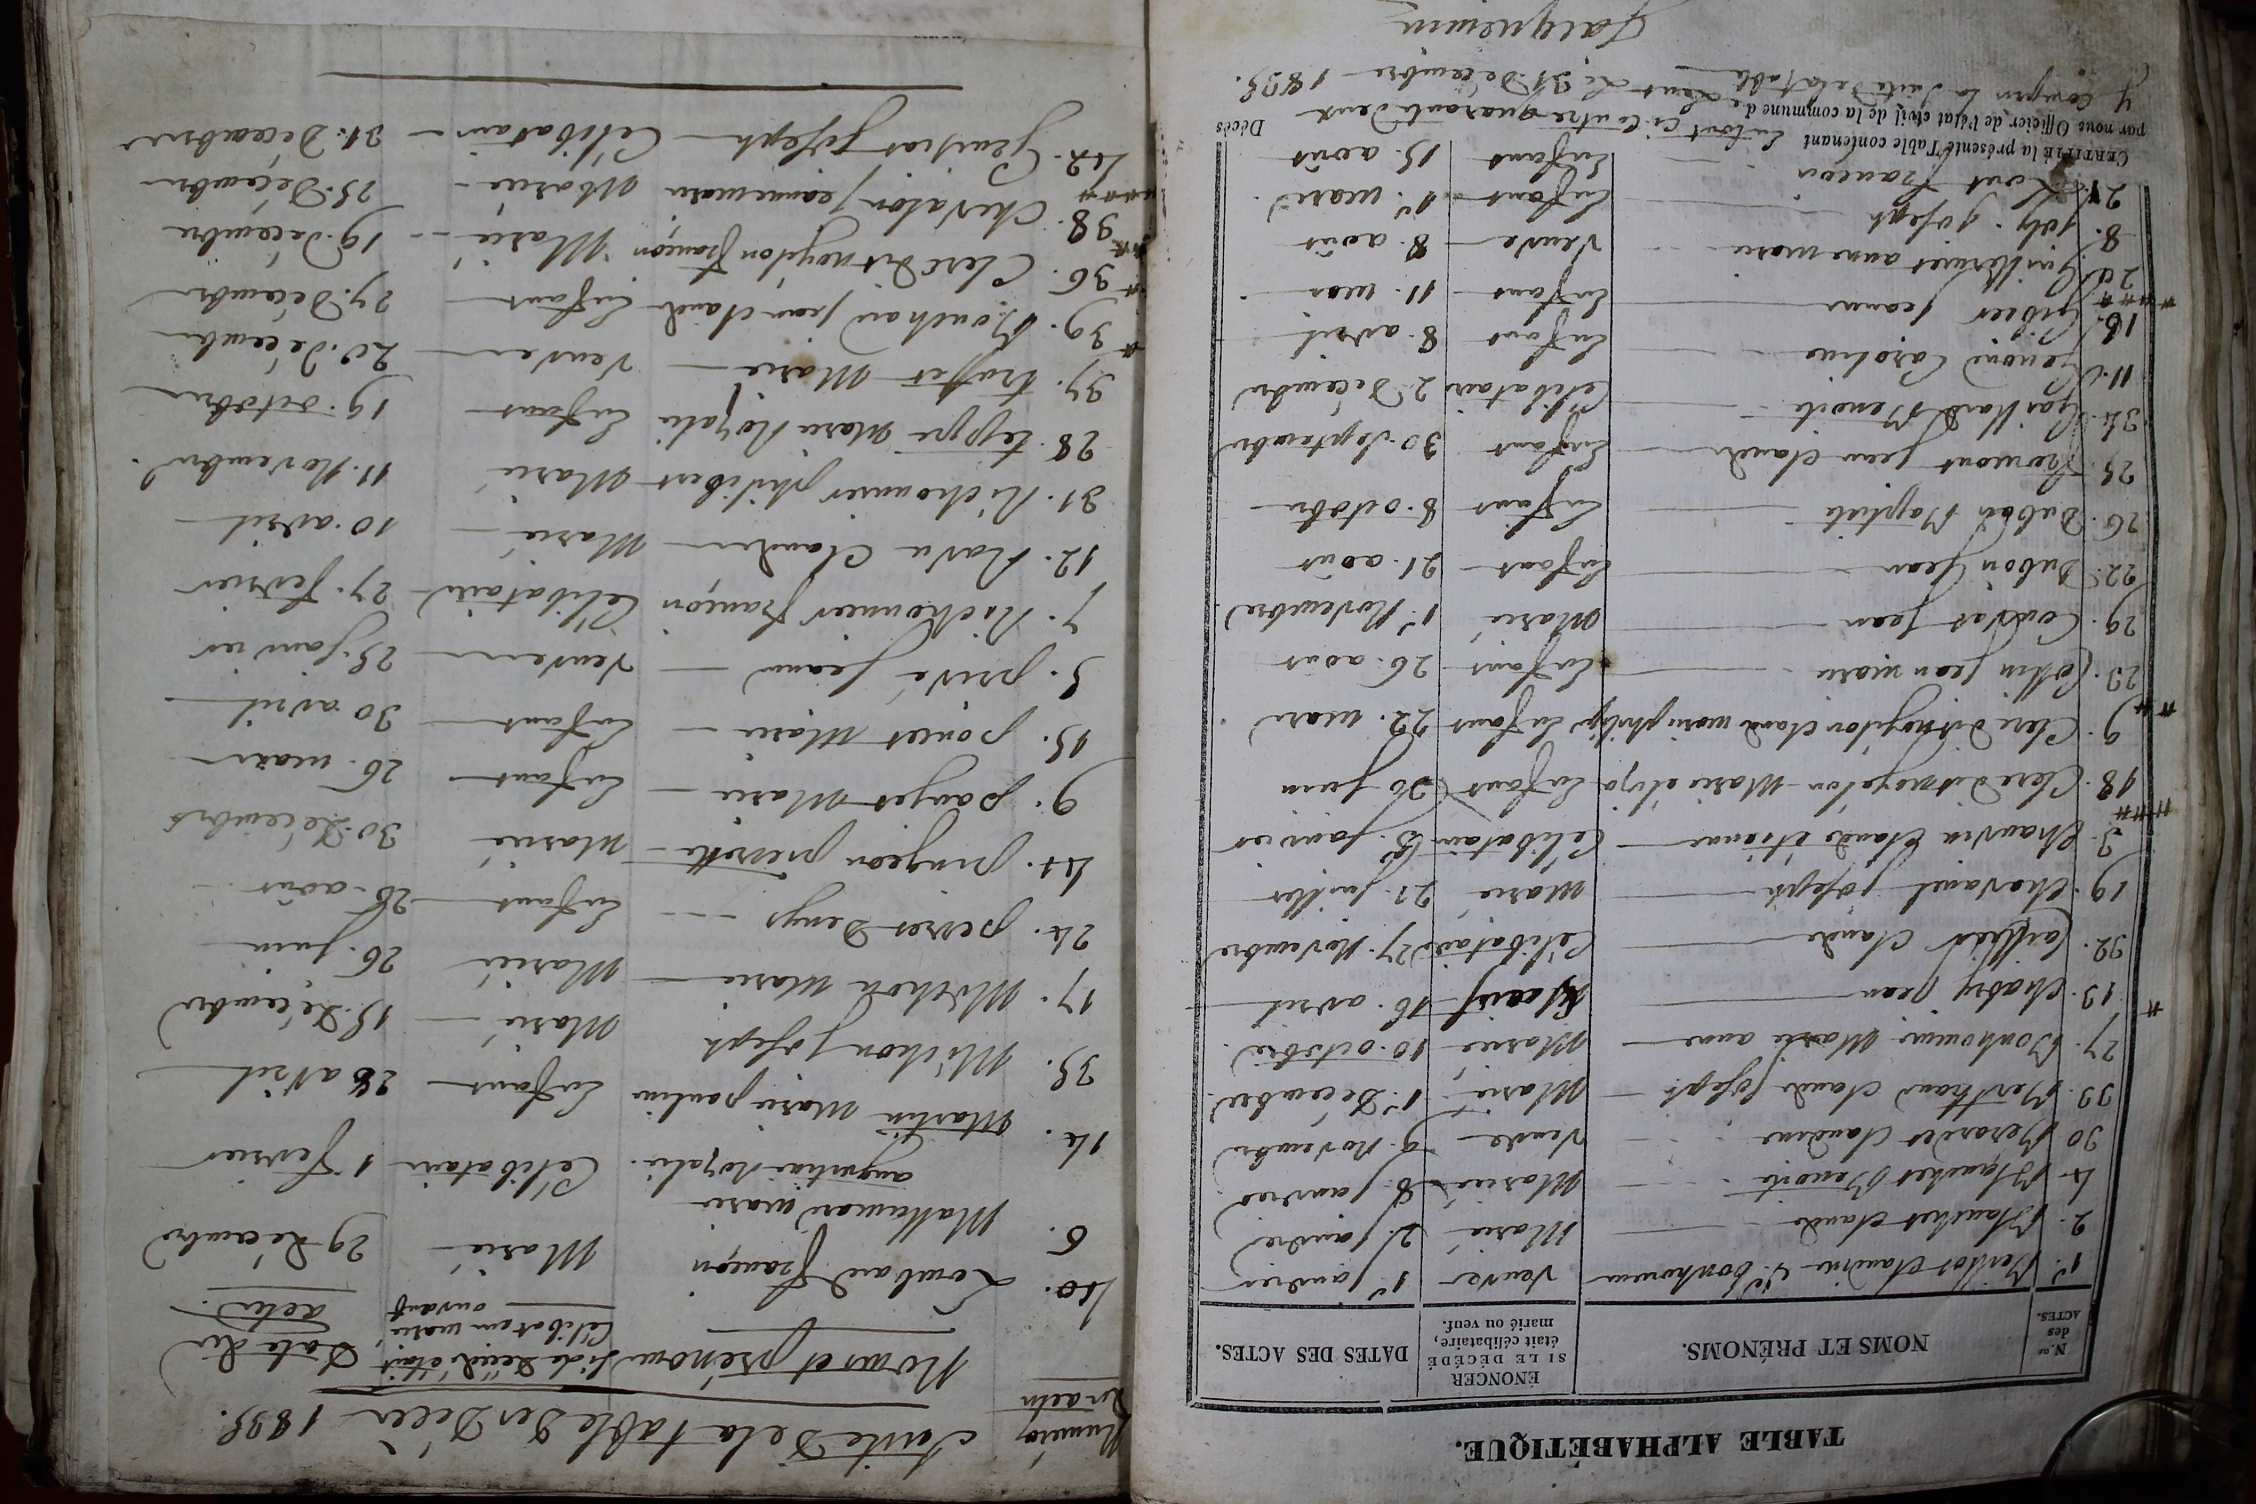 TABLE ALPHABÉTIQUE.
N.os des ACTES. NOMS ET PRÉNOMS. ÉNONCER SI LE DÉCÉDÉ était célibataire, marié ou veuf. DATES DES ACTES.
1er Claudine Ve bonhomme Veuve 1er janvier
2. Blanchet claude Marié 2. janvier
4 Blanchet Benoite Mariée 8. janvier
30 Berardet Claudine Veuve 9. Novembre
33. Berthaud Claude Joseph Marié 1er Décembre
27. Bonhomme Marie anne Mariée 10. octobre
13. Chabry jean 16. avril
32. Caissier Claude Célibataire 27. Novembre
19. Chavanel joseph Marié 21. juillet
3. Chauvin Claude étienne Célibataire 5. janvier
18. Clerc dit noyelon Marie éloïse Enfant 30 juin
9. Clerc dit noyelon claude marie philippe Enfant 22. mars
23. Collin jean marie Enfant 26. août
29. Couvet jean Marié 1er Novembre
22. Dubois Jean Enfant 21. août
26. Dubois Baptiste Enfant 8. octobre
25. Fromont jean claude Enfant 30. septembre
34. Gaillard Benoite Célibataire 2. Décembre
11. Genoud Caroline Enfant 8. avril
16. Gibier jeanne Enfant 11. mai
20. Guillermet anne marie Veuve 8. août
8. joly joseph Enfant 1er mars
21. Lent françois Enfant 15. août
CERTIFIÉ la présente Table contenant En tout ci contre quarante deux Décès
par nous Officier de l'état civil de la commune de Lent Le 31 Décembre 1835.
y compris la suite de la table
Jacquemin
Suite de la table des Décès 1835.
Numéros des actes Noms et prénoms Si le Décédé était Célibataire, marié ou veuf Date des actes.
40. Lombard françois Marié 29 Décembre
6 Mathieu marie
augustine Rosalie Célibataire 1 fevrier
14. Martin Marie pauline Enfant 28 avril
35. Michon joseph Marié 15. Décembre
17. Michon Marie Marié 26. juin
24. perret Denys Enfant 26. août
41. pingeon pierrette Mariée 30. Décembre
9. pauget Marie Enfant 26. mars
15. poncet Marie Enfant 30 avril
5. privé jeanne Veuve 25. janvier
7. Richonnier françois Célibataire 27. fevrier
12. Ravu Claudine Marié 10. avril
31. Richonnier philibert Marié 11. Novembre.
28. teppe Marie Rozalie Enfant 19. octobre
37. traffet Marie Veuve 20. Décembre
39. Bouchard jean claude Enfant 27. Décembre
36. Clerc dit noyelon françois Marié 19. Décembre
38. Chevalon jeanne marie Mariée 25. Décembre
42. joseph Célibataire 31. Décembre